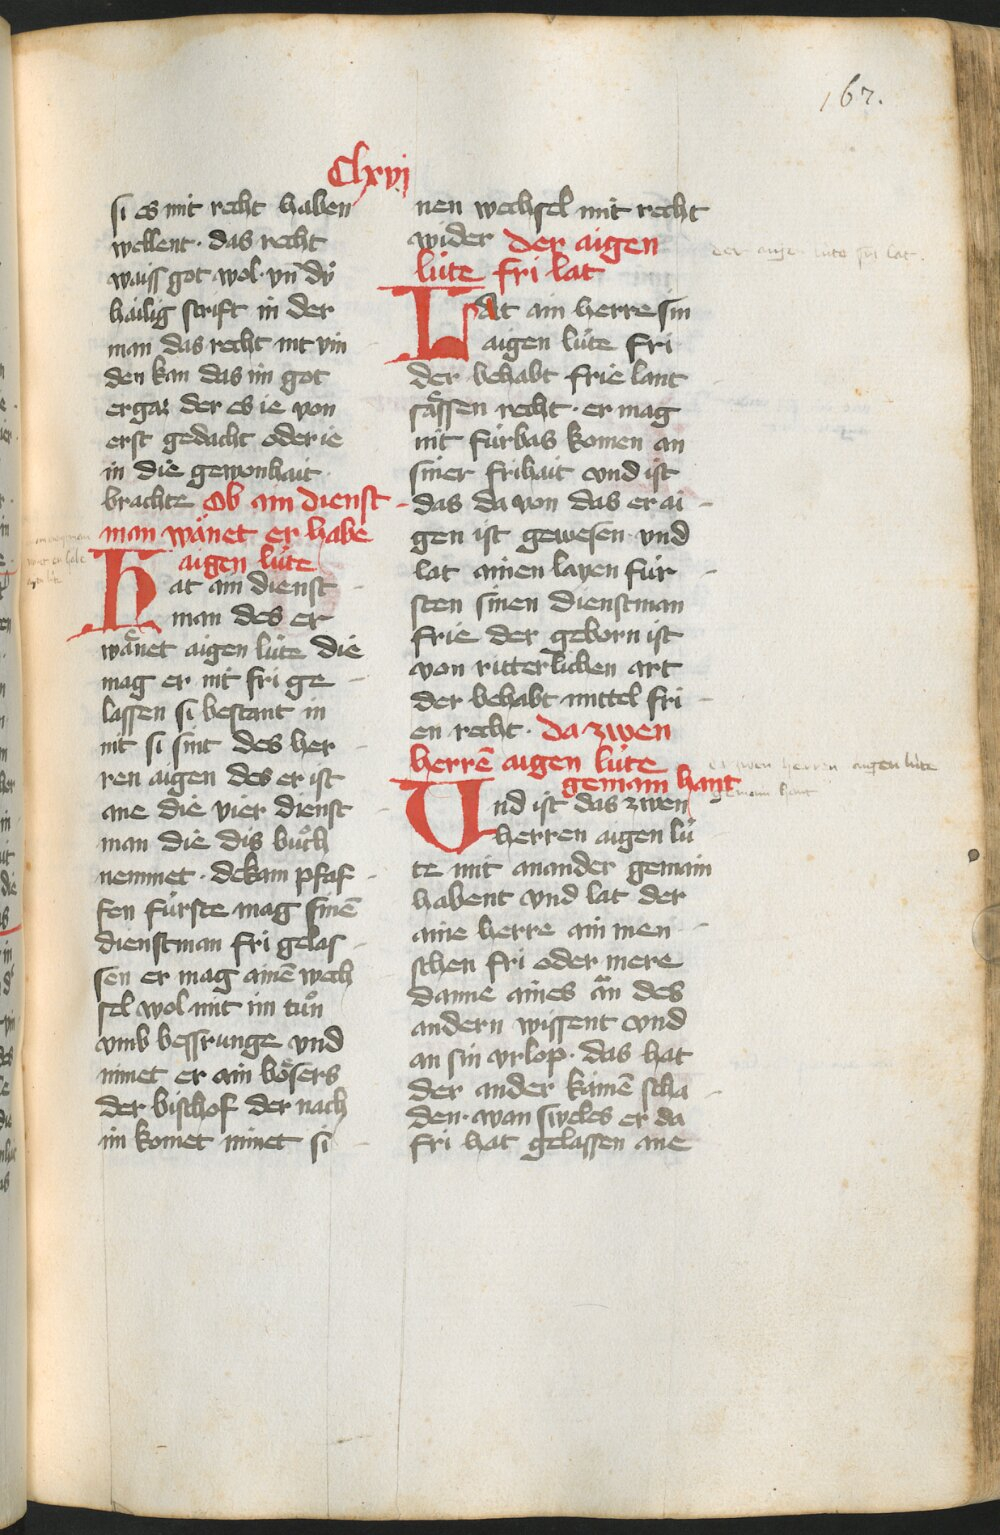 167.
Clxvj
si es mit recht haben
wellent · das recht
waiss got wol · vn̄ dÿ
hailig scrift in der
man das recht nit vin
den kan das im got
ergaz der es ie von
erst gedacht oder ie
in die gewonhait
brachte Ob ain dienst
man wänet er habe
aigen lüte
Hat ain dienst
man des er
wänet aigen lüte die
mag er nit fri ge
lassen si bestant in
nit si sint des her
ren aigen des er ist
ane die vier dienst
man die dis bůch
nemmet · dekain pfaf
fen fürste mag sinē
dienstman fri gelas
sen er mag ainē wech
sel wol mit im tůn
vmb bessrunge vnd
nimet er ain bösers
der bischof der nach
im komet nimet si
nen wechsel mit recht
wider der aigen
lüte fri lat
Lat ain herre sin
aigen lüte fri
der behabt frie lant
sässen recht · er mag
nit fürbas komen an
siner frihait vnd ist
das da von das er ai
gen ist gewesen vnd
lat ainen layen für
sten sinen dienstman
frie der geborn ist
von ritterlichen art
der behabt mittel fri
en recht · da zwen
herrē aigen lüte
gemain hant
Vnd ist das zwen
herren aigen lü
te mit ainander gemain
habent vnd lat der
aine herre ain men
schen fri oder mere
danne aines än des
andern wissent vnd
an sin vrlop · das hat
der ander kainē scha
den · wan sweles er da
fri hat gelassen ane
der aigen lüte fri lat.
herren aigen lüte
hant